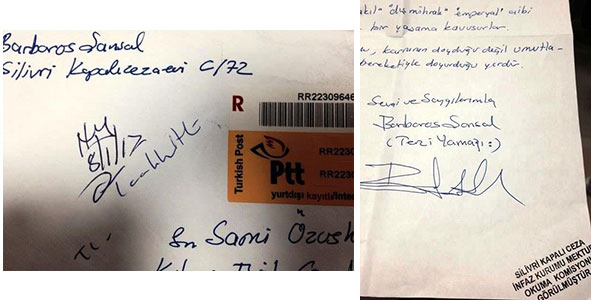 Barbaros Sansal
Silivri Kapalıcezaevi C/72
R
RR22309646
8/1/17
Taahhütlü
Turkish Post
Ptt
RR2230
RR2230
yurtdışı kayıtlı/inter
Sn Sami Özusl
"dış mihrak" "emperyal" gibi
bir yaşama kavuşurlar.
karnının doyduğu değil umutla-
bereketiyle doyurduğu yerdir.
Sevgi ve Saygılarımla
Barbaros Sansal
(Terzi Yamağı:)
SİLİVRİ KAPALI CEZA
İNFAZ KURUMU MEKTUP
OKUMA KOMİSYONU
GÖRÜLMÜŞTÜR